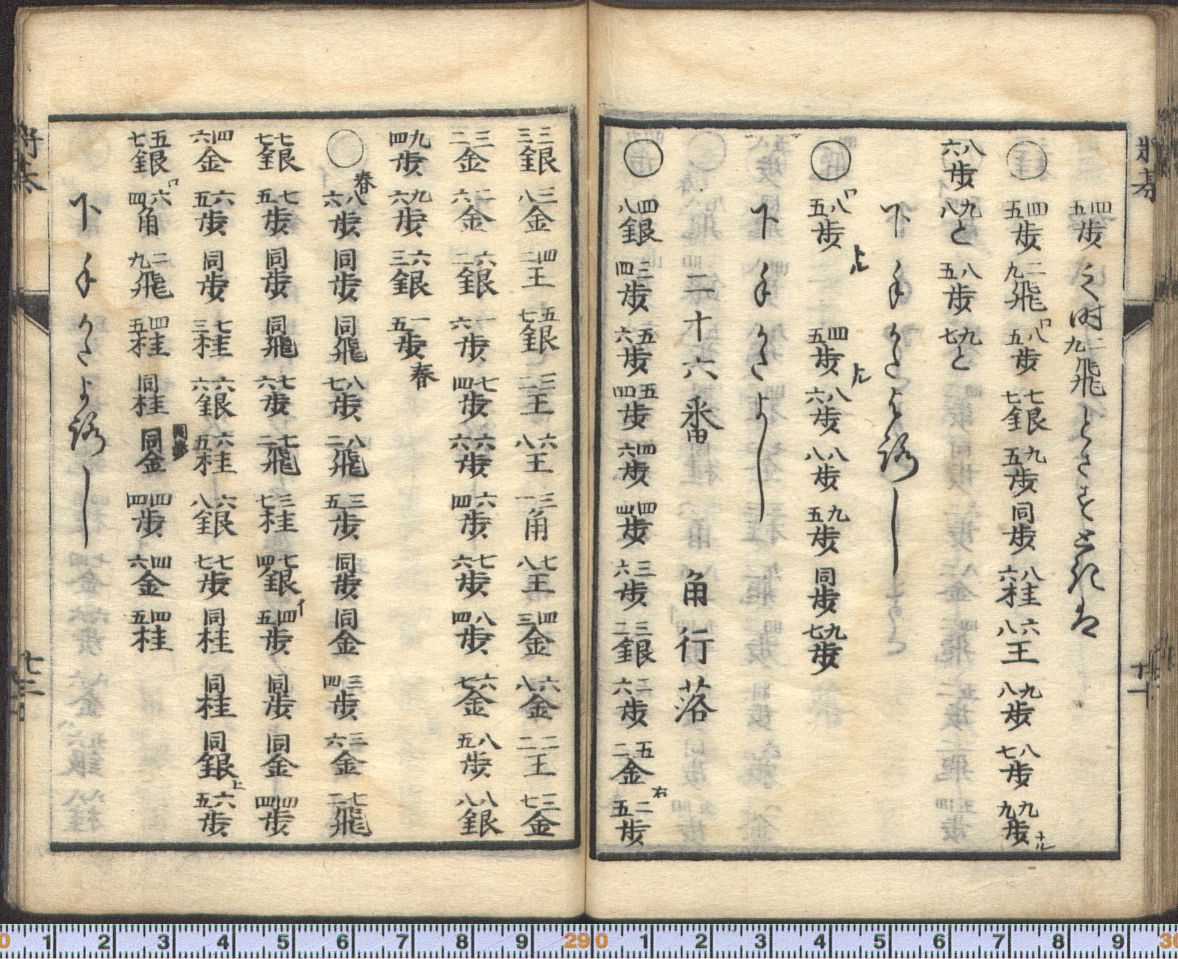 四五歩之時二九飛とさすときは
○四五歩 二九飛 ロ八五歩 七七銀 九五歩 同歩 八六桂 六八王 九八歩 八七歩 九九歩ナル
八六歩 九八と 八五歩 九七と
下手かたよろし
○ロ八五歩 四五歩 八六歩 八八歩 九五歩 同歩 九七歩
下手かたよし
二十六番 角行落
○四八銀 三四歩 五六歩 五四歩 四六歩 四四歩 三六歩 三二銀 二六歩 五二金右 二五歩
三三銀 三八金 四二王 五七銀 三二王 六八王 三一角 七八王 四三金 六八金 二二王 三七金
三二金 二六金 六二銀 一六歩 七四歩 六六歩 六四歩 七六歩 八四歩 六七金 八五歩 八八銀
九四歩 九六歩 六三銀 一五歩
○八六歩 同歩 同飛 八七歩 八二飛 三五歩 同歩 同金 三四歩 三六金 七二飛
七七銀 七五歩 同歩 同飛 七六歩 七二飛 三七桂 七四銀イ 四五歩 同歩 同金 四四歩
四六金 六五歩 同歩 七三桂 六六銀 六五桂 六八銀 七七歩 同桂 同桂 同銀上 六五歩
五七銀 六四角 二九飛 四五桂 同桂 同金 四四歩 四六金 四五桂
下手かたよろし